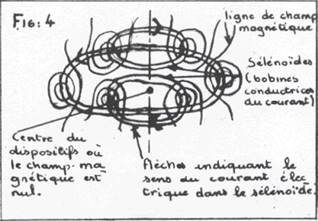 FIG: 4
ligne de champ
magnétique
Sélénoïdes
(bobines
conductrices
du courant)
Centre du
dispositifs où
le champ-ma-
gnétique est
nul.
Flèches indiquant le
sens du courant élec-
trique dans le sélénoïde.